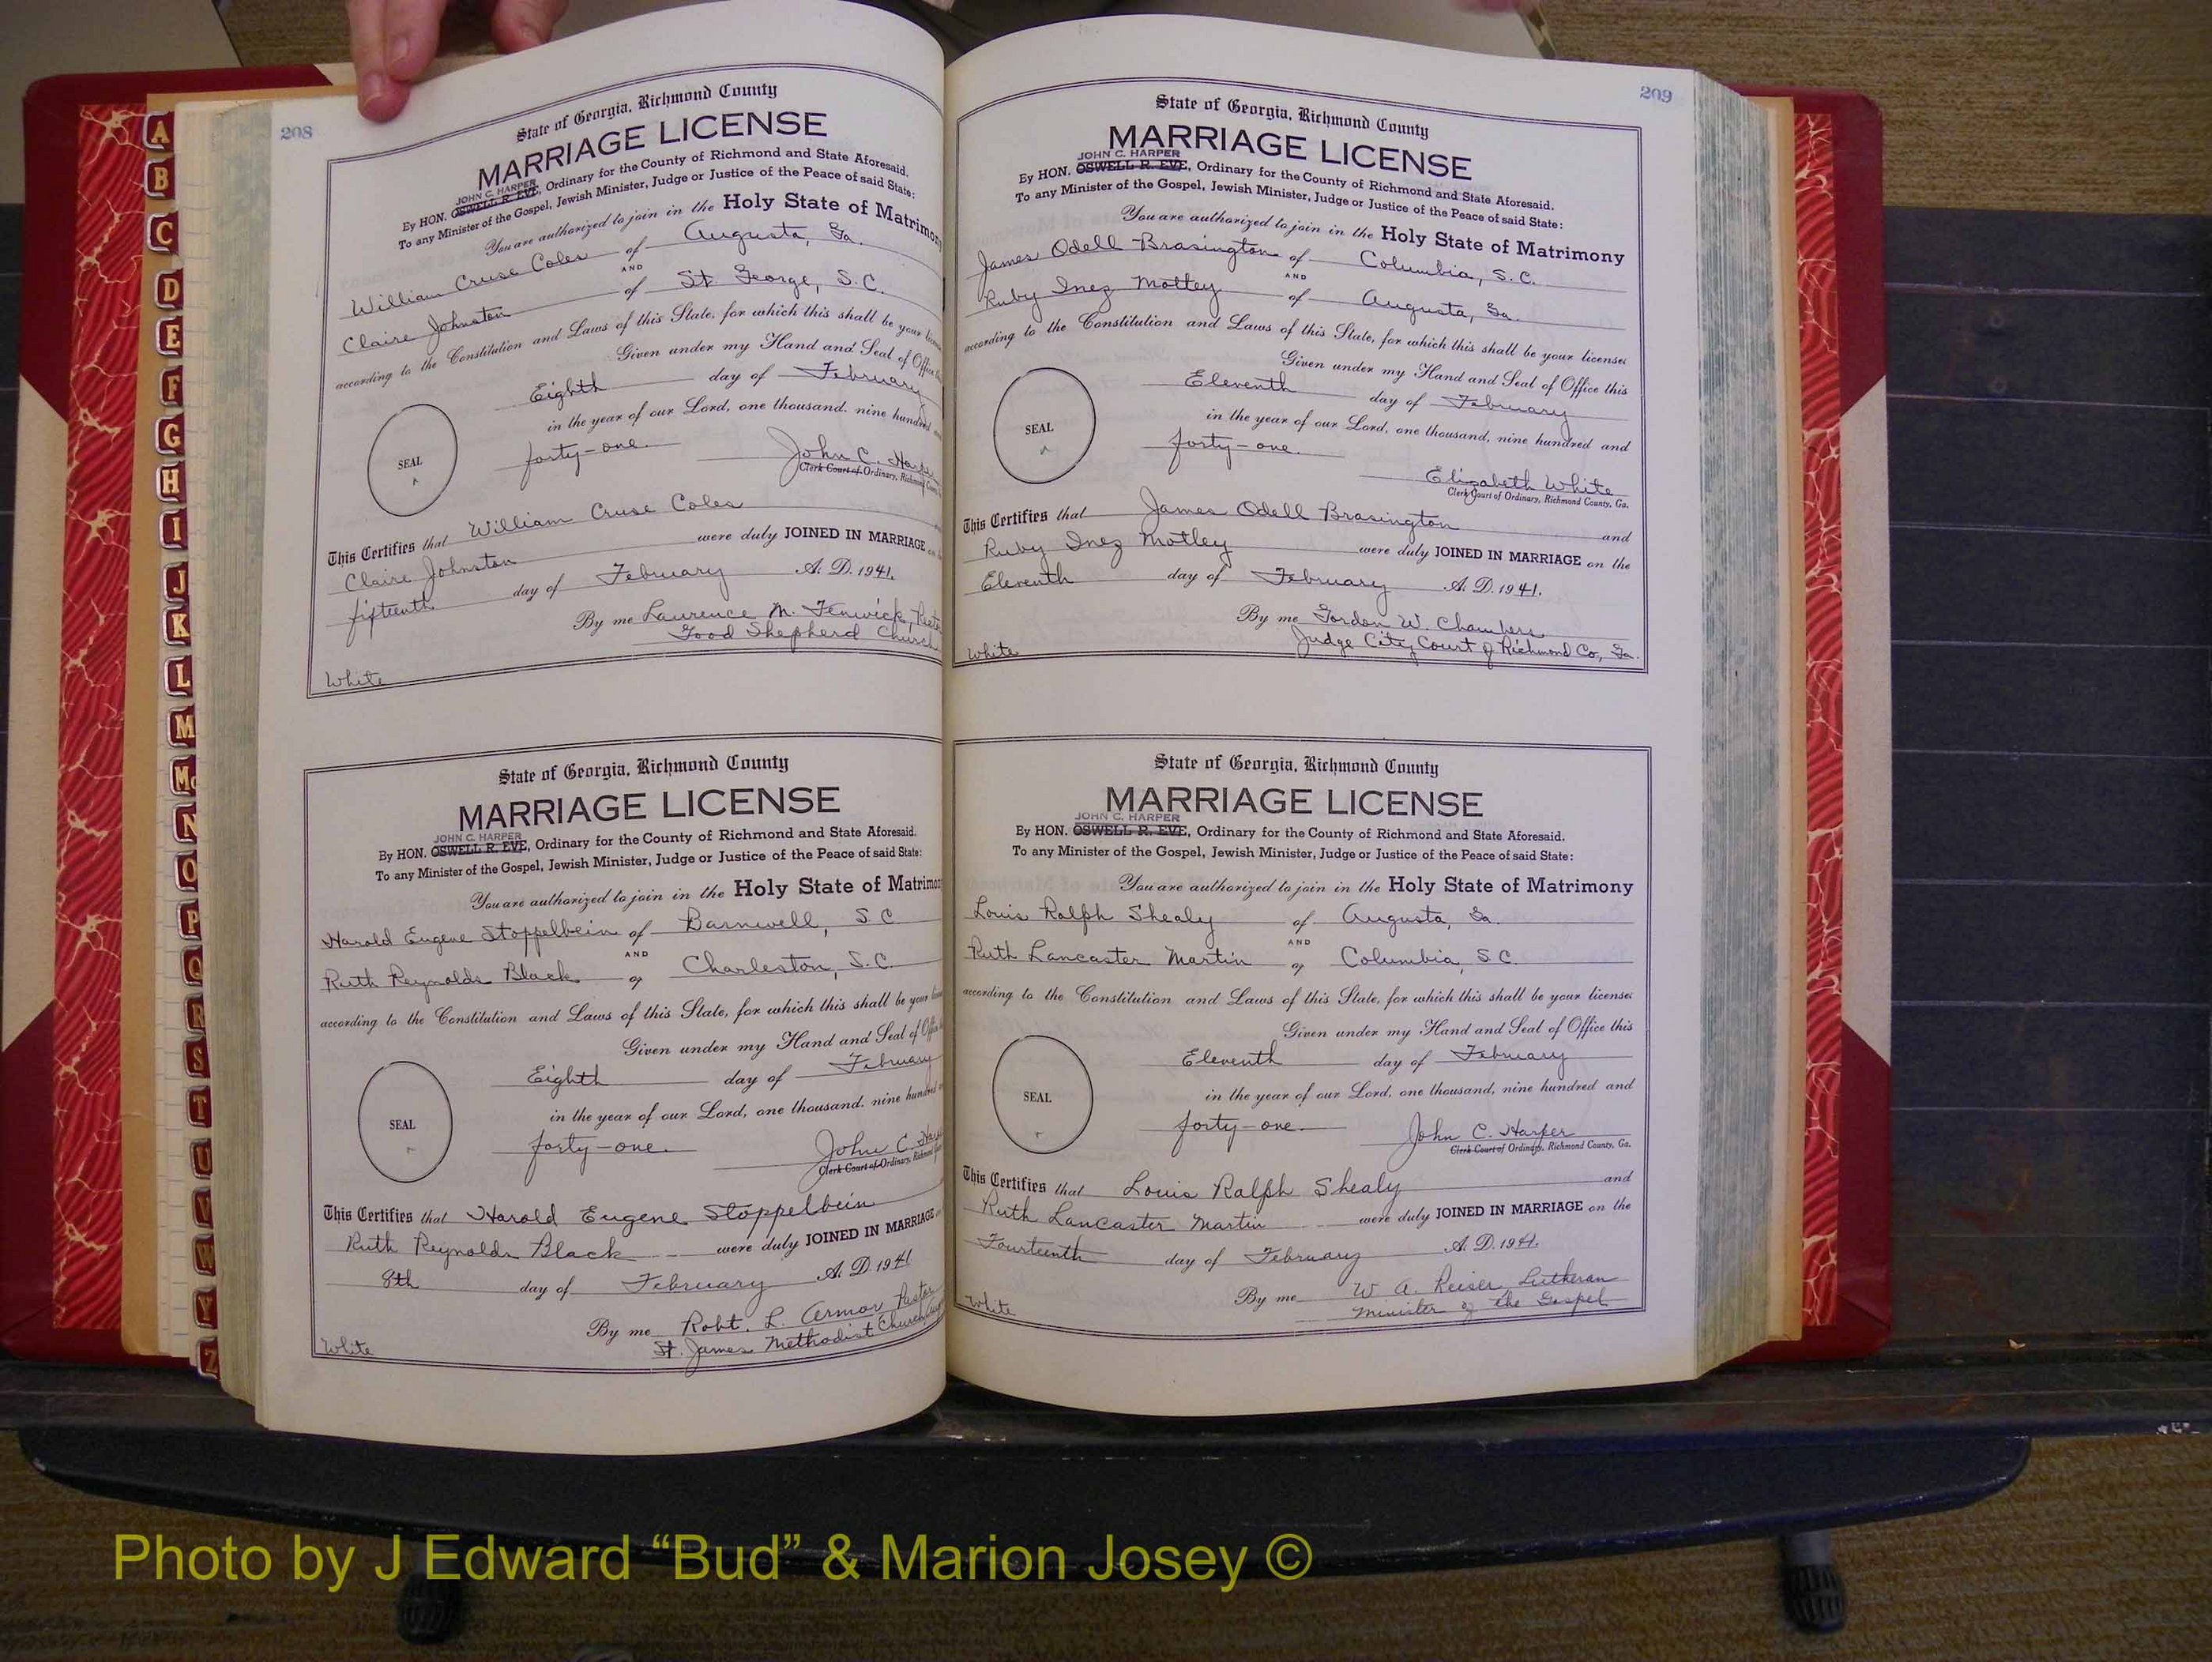 208
State of Georgia, Richmond County
MARRIAGE LICENSE
JOHN C. HARPER
By HON. OSWELL R. EVE, Ordinary for the County of Richmond and State Aforesaid.
To any Minister of the Gospel, Jewish Minister, Judge or Justice of the Peace of said State:
You are authorized to join in the Holy State of Matrimony
William Cruse Coles of Augusta, Ga.
AND
Claire Johnston of St. George, S.C.
according to the Constitution and Laws of this State, for which this shall be your
Given under my Hand and Seal of Office
Eighth day of February
in the year of our Lord, one thousand, nine hundred
SEAL
forty-one.
John C.
Clerk Court of Ordinary, Richmond
This Certifies that William Cruse Coles
Claire Johnston were duly JOINED IN MARRIAGE
fifteenth day of February A. D. 1941.
By me Laurence M. Fenwick,
Good Shepherd Church
White
State of Georgia, Richmond County
MARRIAGE LICENSE
JOHN C. HARPER
By HON. OSWELL R. EVE, Ordinary for the County of Richmond and State Aforesaid.
To any Minister of the Gospel, Jewish Minister, Judge or Justice of the Peace of said State:
You are authorized to join in the Holy State of
Harold Eugene Stoppelbein of Barnwell, S.C.
AND
Ruth Reynolds Black of Charleston, S.C.
according to the Constitution and Laws of this State, for which this shall be your
Given under my Hand and Seal of
Eighth day of February
in the year of our Lord, one thousand, nine hundred
SEAL
forty-one.
John C.
Clerk Court of Ordinary,
This Certifies that Harold Eugene Stoppelbein
Ruth Reynolds Black were duly JOINED IN MARRIAGE
8th day of February A. D. 1941
By me Robt. L. Armor, Pastor
St. James Methodist Church
White
209
State of Georgia, Richmond County
MARRIAGE LICENSE
JOHN C. HARPER
By HON. OSWELL R. EVE, Ordinary for the County of Richmond and State Aforesaid.
To any Minister of the Gospel, Jewish Minister, Judge or Justice of the Peace of said State:
You are authorized to join in the Holy State of Matrimony
James Odell Brasington of Columbia, S.C.
AND
Ruby Inez Motley of Augusta, Ga.
according to the Constitution and Laws of this State, for which this shall be your license:
Given under my Hand and Seal of Office this
Eleventh day of February
in the year of our Lord, one thousand, nine hundred and
SEAL
forty-one.
Elizabeth White
Clerk Court of Ordinary, Richmond County, Ga.
This Certifies that James Odell Brasington and
Ruby Inez Motley were duly JOINED IN MARRIAGE on the
Eleventh day of February A. D. 1941.
By me Gordon W. Chambers
Judge City Court of Richmond Co, Ga.
White
State of Georgia, Richmond County
MARRIAGE LICENSE
JOHN C. HARPER
By HON. OSWELL R. EVE, Ordinary for the County of Richmond and State Aforesaid.
To any Minister of the Gospel, Jewish Minister, Judge or Justice of the Peace of said State:
You are authorized to join in the Holy State of Matrimony
Louis Ralph Shealy of Augusta, Ga.
AND
Ruth Lancaster Martin of Columbia, S.C.
according to the Constitution and Laws of this State, for which this shall be your license:
Given under my Hand and Seal of Office this
Eleventh day of February
in the year of our Lord, one thousand, nine hundred and
SEAL
forty-one.
John C. Harper
Clerk Court of Ordinary, Richmond County, Ga.
This Certifies that Louis Ralph Shealy and
Ruth Lancaster Martin were duly JOINED IN MARRIAGE on the
Fourteenth day of February A. D. 1941.
By me W. A. Reiser, Lutheran
Minister of the Gospel
White
A
B
C
D
E
F
G
H
I
J
K
L
M
Mc
N
O
P
Q
R
S
T
U
V
W
Y
Z
Photo by J Edward “Bud” & Marion Josey ©